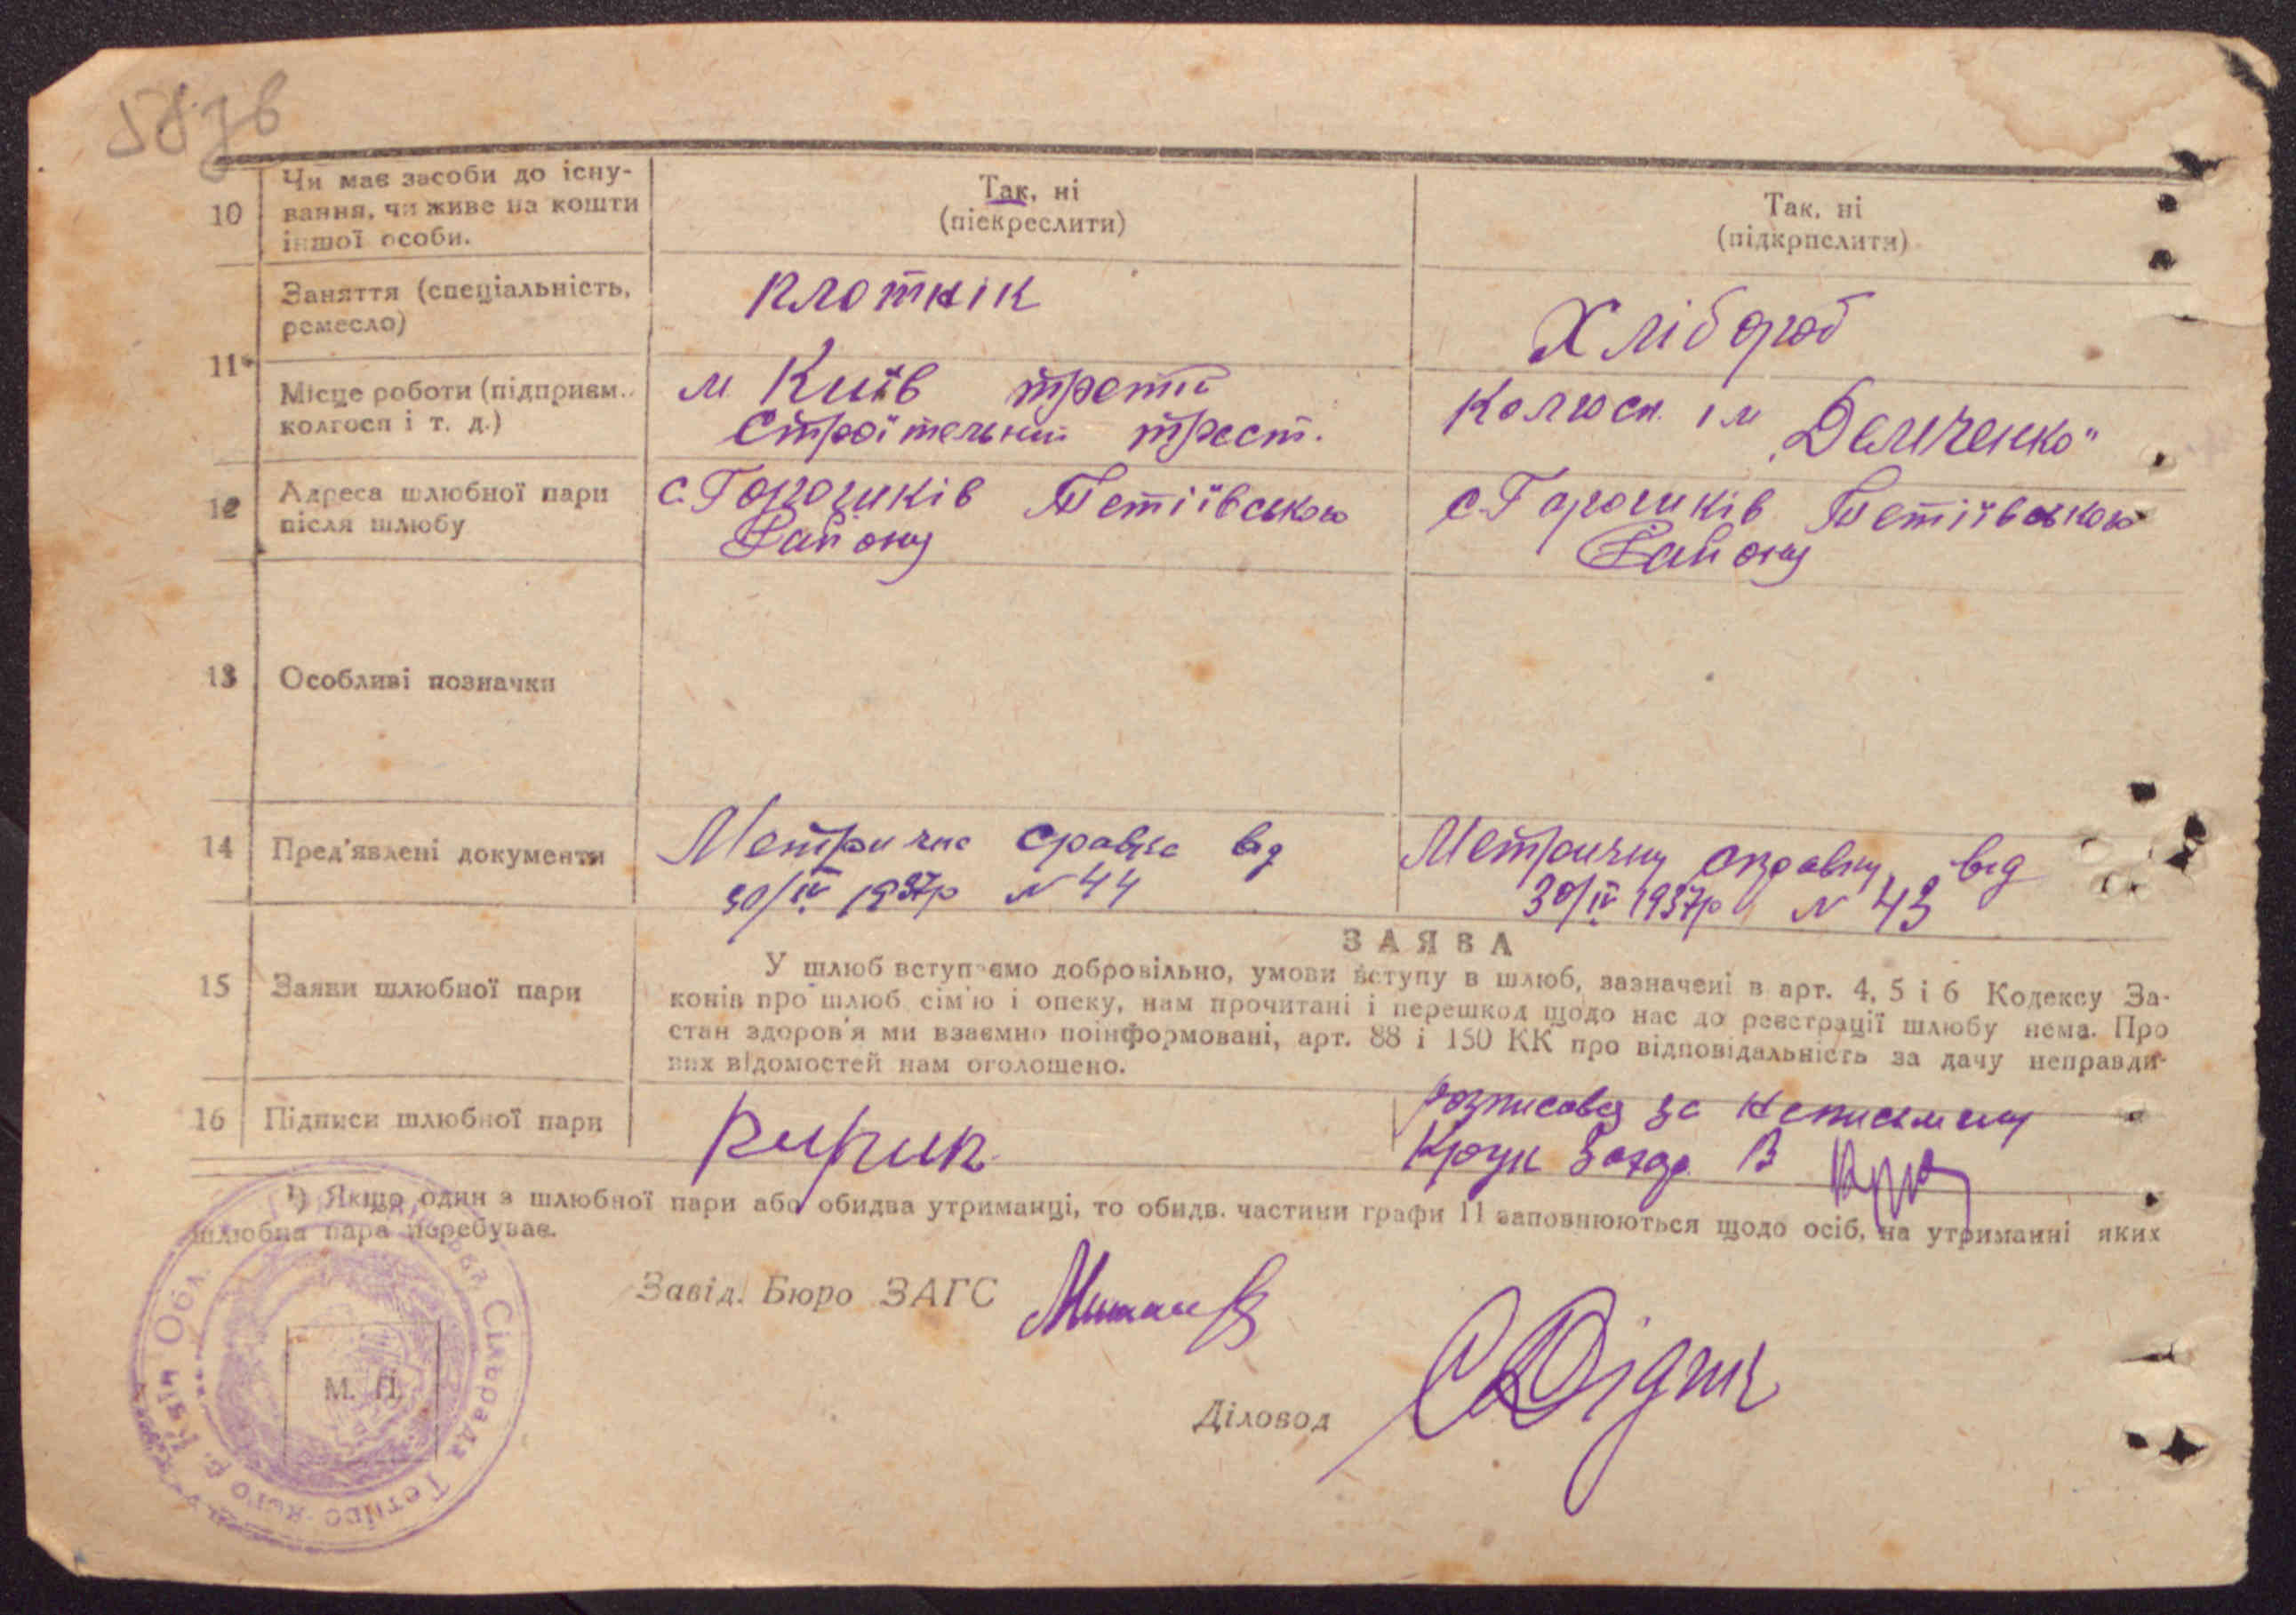 58зв
10
Чи має засоби до існу-
вання, чи живе на кошти
іншої особи.
Так, ні
(піекреслити)
Так, ні
(підкрпслити)
11
Заняття (спеціальність,
ремесло)
плотнік
Хлібороб
Місце роботи (підприєм.,
колгосп і т. д.)
м Київ третій
Строїтельний трест.
Колгосп ім
„Демченко"
12
Адреса шлюбної пари
після шлюбу
с. Горошків Тетіївського
Району
с. Горошків Тетіївського
Району
13
Особливі позначки
14
Пред'явлені документи
Метрична справка від
30/IV 1937р N 44
Метричну справку від
30/IV 1937р N 43
15
Заяви шлюбної пари
ЗАЯВА
У шлюб вступаємо добровільно, умови вступу в шлюб, зазначені в арт. 4, 5 і 6 Кодексу За-
конів про шлюб, сім'ю і опеку, нам прочитані і перешкод щодо нас до реєстрації шлюбу нема. Про
стан здоров'я ми взаємно поінформовані, арт. 88 і 150 КК про відповідальність за дачу неправди-
вих відомостей нам оголошено.
16
Підписи шлюбної пари
Кирик
розписавсь за неписьмену
Крук В
¹) Якщо один з шлюбної пари або обидва утриманці, то обидв. частини графи 11 заповнюються щодо осіб, на утриманні яких
шлюбна пара перебуває.
Завід. Бюро ЗАГС
Діловод
М. П.
Сільрада Тетіївського р. Київ Обл.